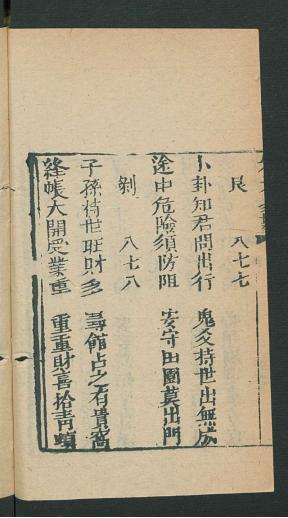 艮 八七七
卜卦知君問出行 鬼爻持世出無成
途中危險須防阻 安守田園莫出門
剝 八七八
子孫持世旺財多 尋館占之有貴
絳帳大開受業重 重重財喜拾青